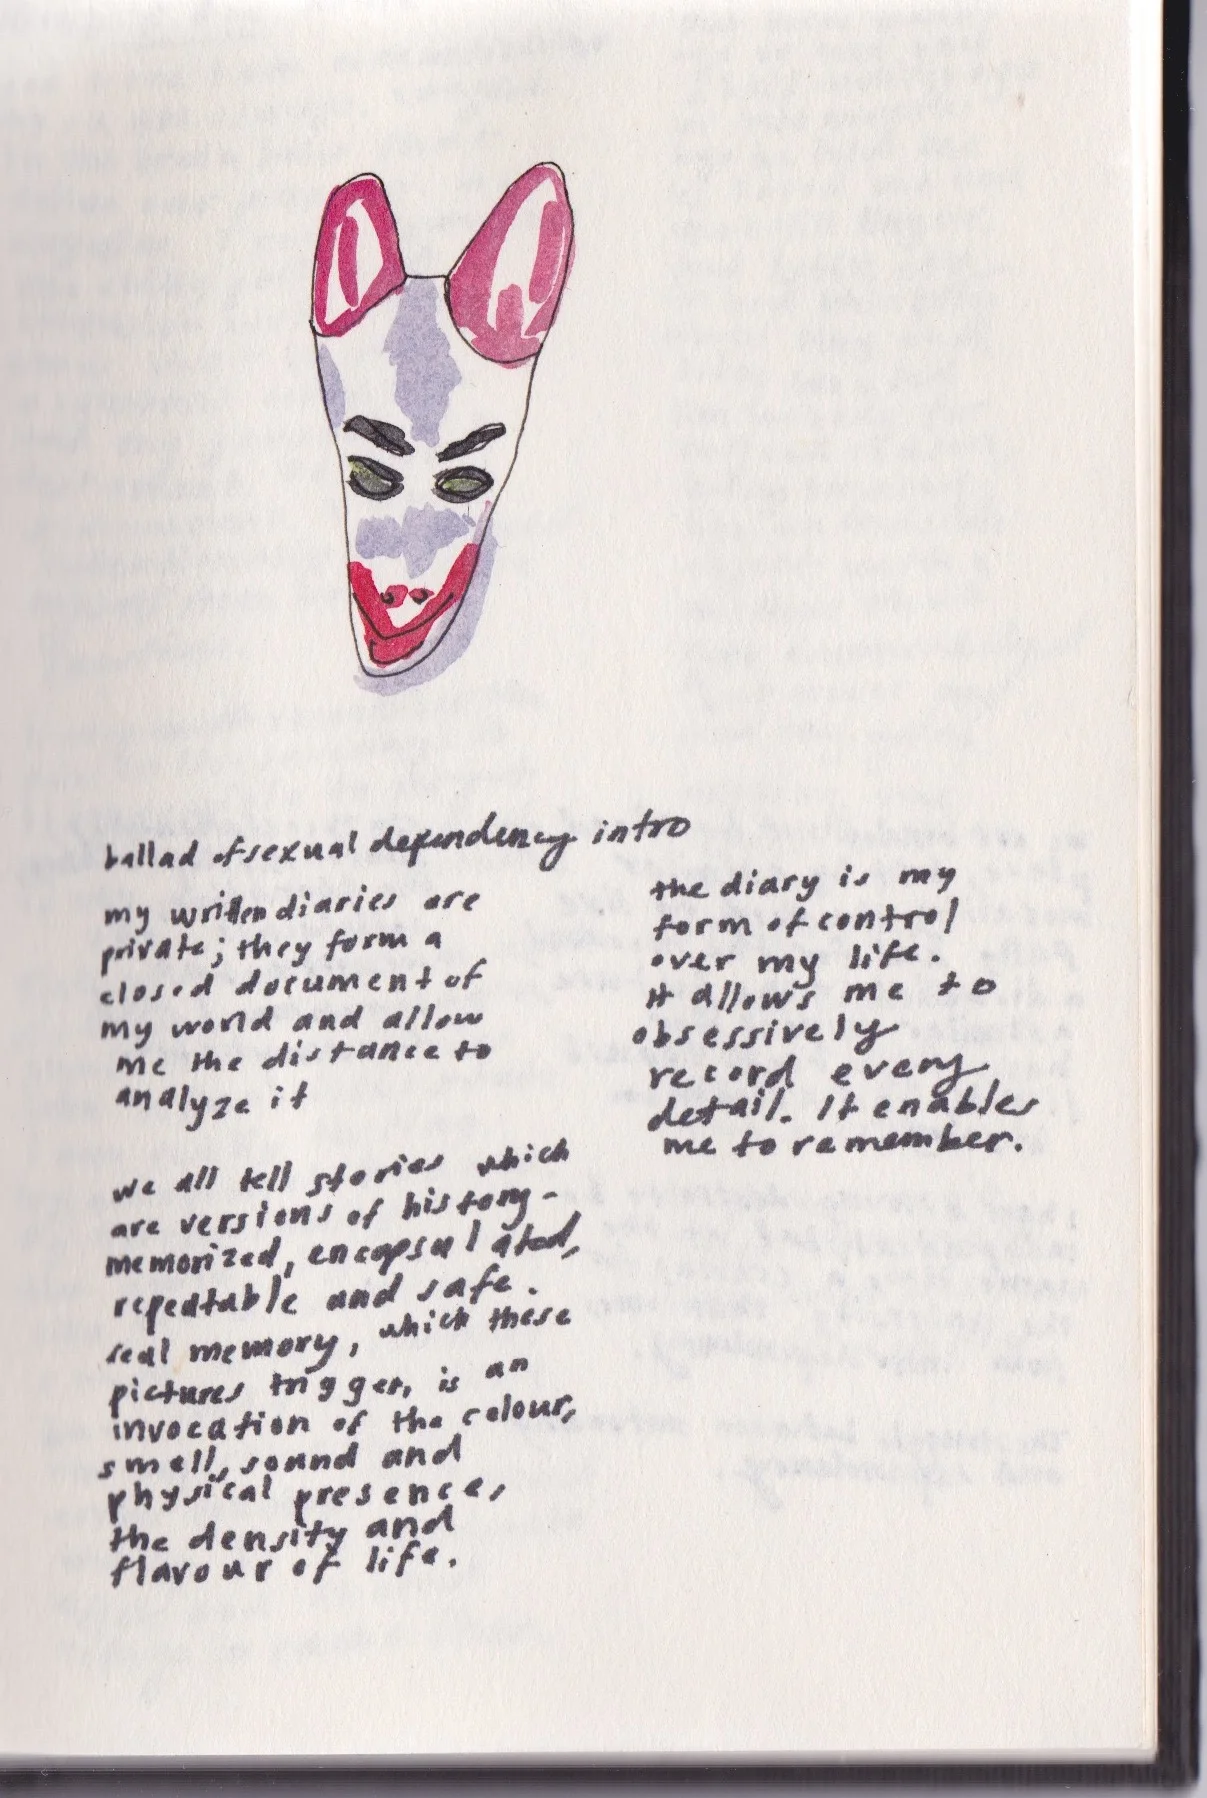 ballad of sexual dependency intro
my written diaries are
private; they form a
closed document of
my world and allow
me the distance to
analyze it
we all tell stories which
are versions of history -
memorized, encapsulated,
repeatable and safe.
real memory, which these
pictures trigger, is an
invocation of the colour,
smell, sound and
physical presence,
the density and
flavour of life.
the diary is my
form of control
over my life.
it allows me to
obsessively
record every
detail. It enables
me to remember.